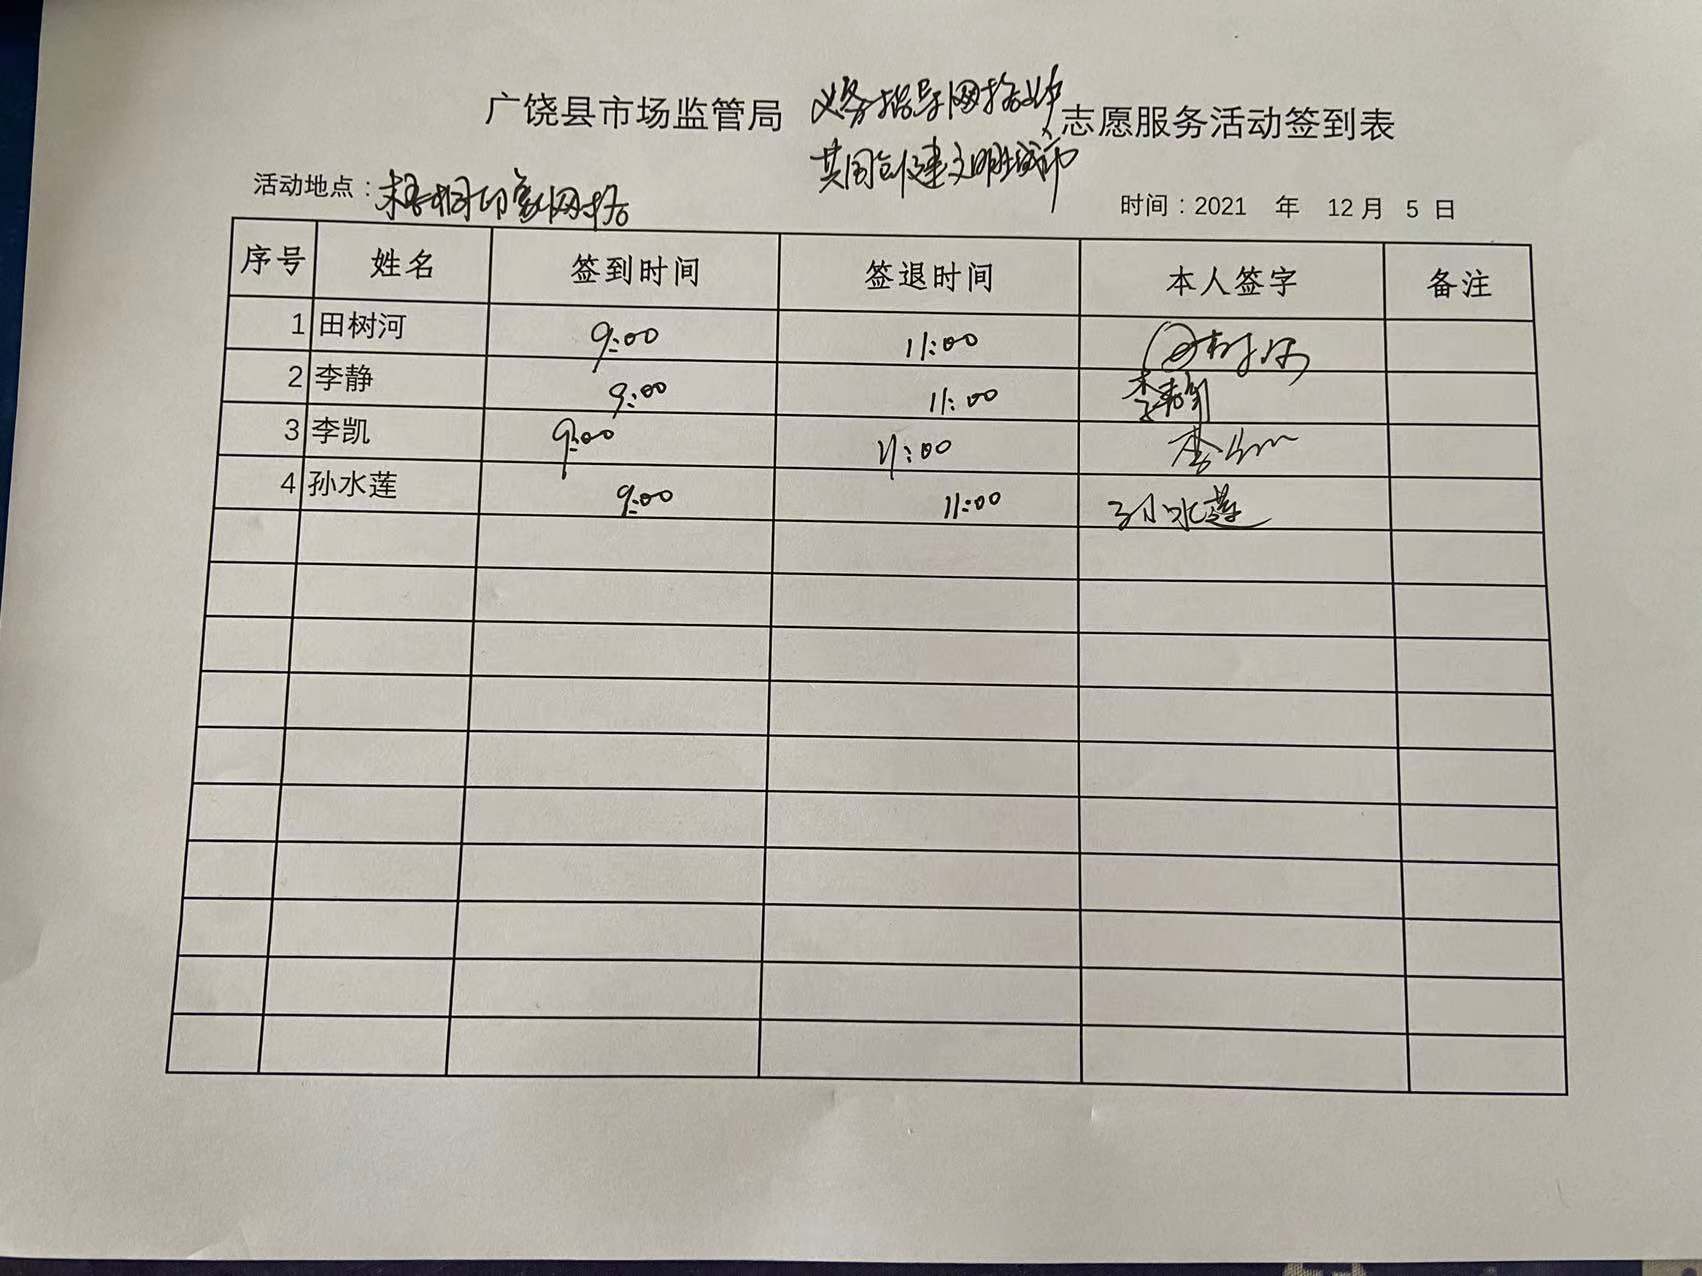 广饶县市场监管局 义务指导网格 志愿服务活动签到表
共同创建文明城市
活动地点：梧桐印象网格
时间：2021 年 12月 5 日
序号 姓名 签到时间 签退时间 本人签字 备注
1 田树河 9:00 11:00 田树河
2 李静 9:00 11:00 李静
3 李凯 9:00 11:00 李凯
4 孙水莲 9:00 11:00 孙水莲